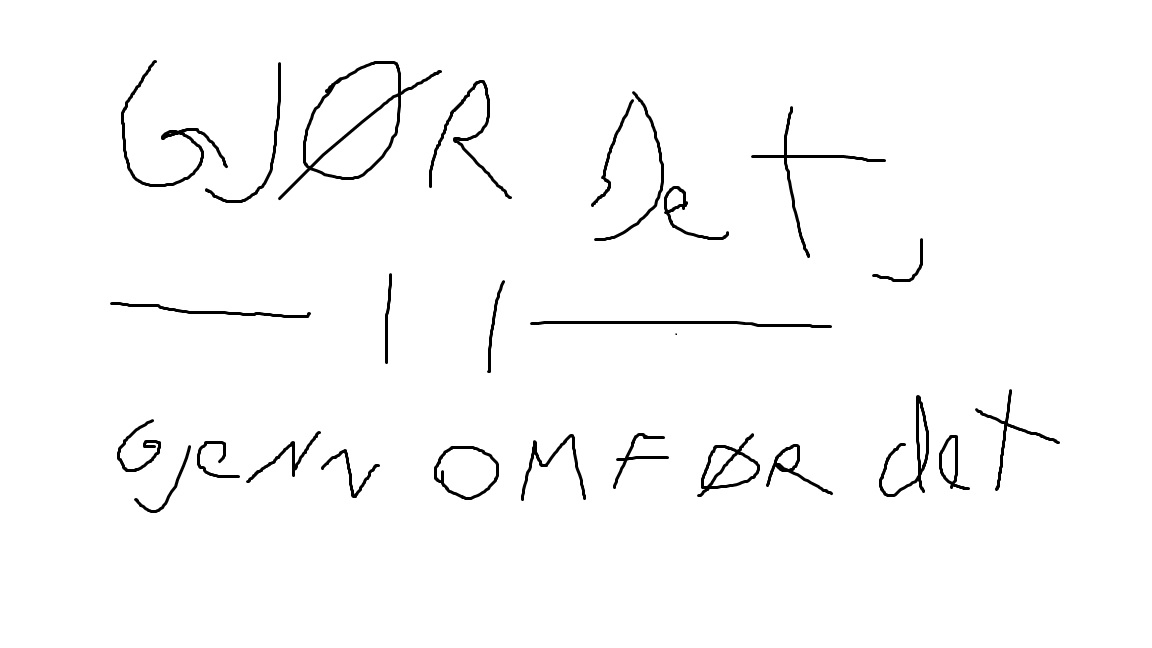 GJØR Det,
— 11 —
GjeNN OMFØR det